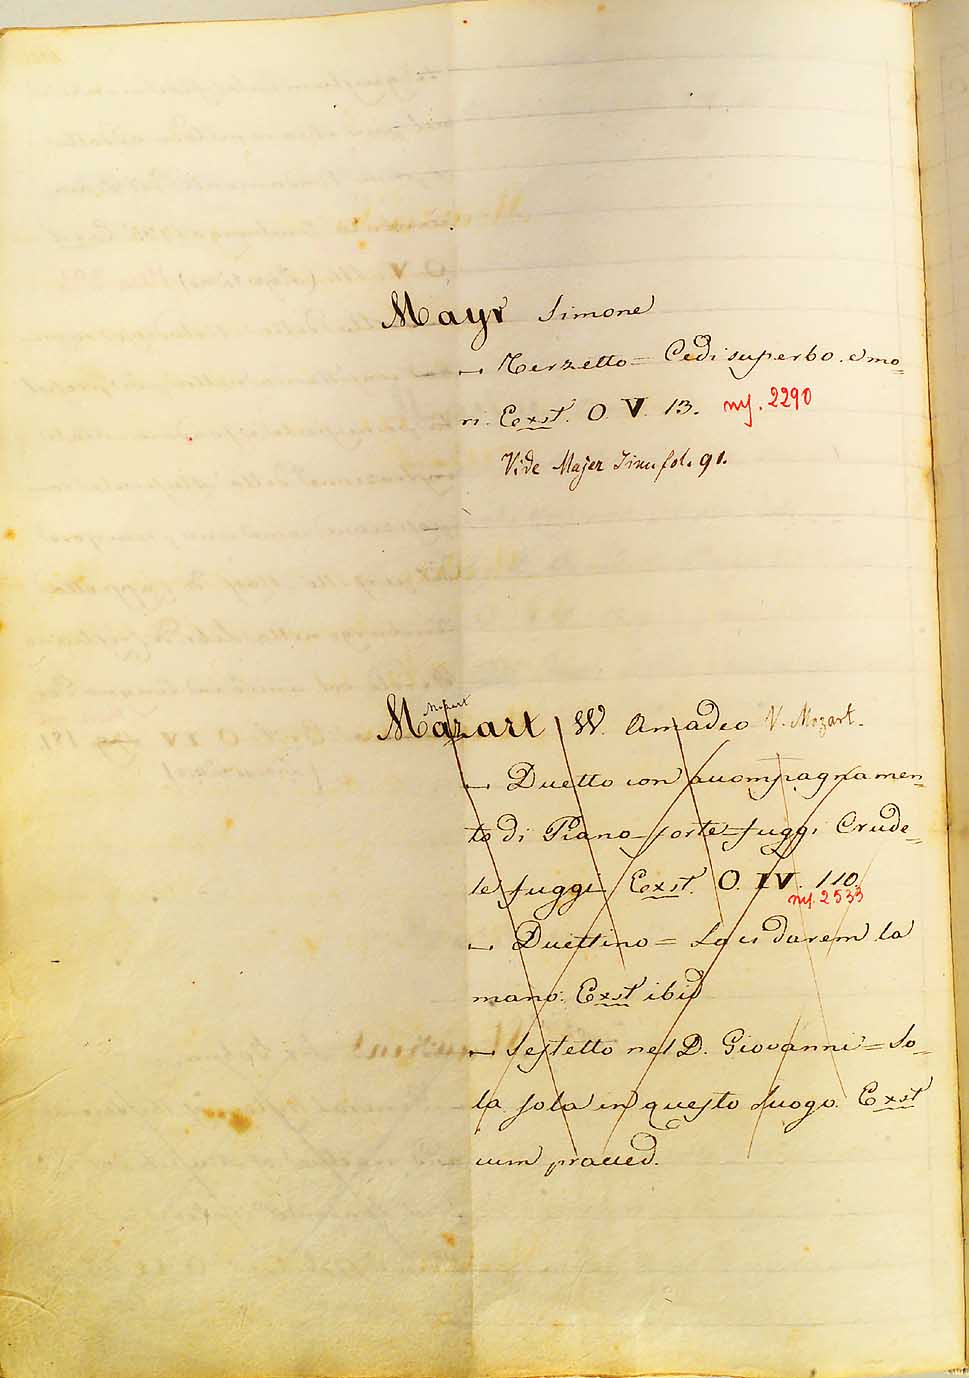 Mayr Simone
— Terzetto = Cedi superbo. e mo=
ri. Exst. O. V. 13. nf. 2290
Vide Majer Simu fol. 91.
Mozart
Mazart W. Amadeo V. Mozart.
— Duetto con accompagnamen=
to di Piano-forte = fuggi Crude=
le fuggi Exst. O. IV. 110.
nf. 2533
— Duettino = La ci darem la
mano. Exst ibid
— Sestetto nel D. Giovanni = So=
la sola in questo luogo. Exst
cum praeced.